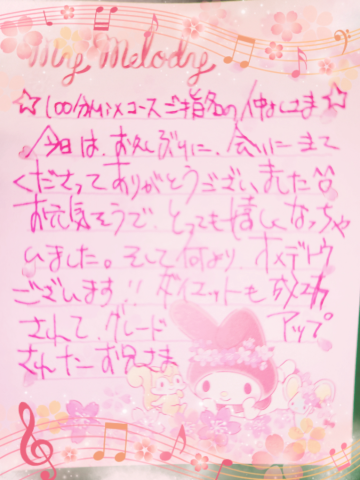 My Melody
☆100分MIXコースご指名の仲よしさま☆
今日は、お久しぶりに、会いに来て
くださってありがとうございました
お元気そうで、とっても嬉しくなっちゃ
いました。そして何より、オメデトウ
ございます!!ダイエットも成功
されて、グレード アップ
されたお兄さま